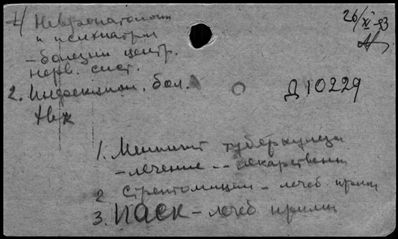 1) Невропатологии
и психиатрии
- болезни центр.
нерв. сист.
2. Инфекцион. бол.
26/XI-93
Д10229
1. Менингит туберкулезн
- лечение -- лекарственн
2 Стрептомицин - лечеб примен
3. ПАСК - лечеб примен